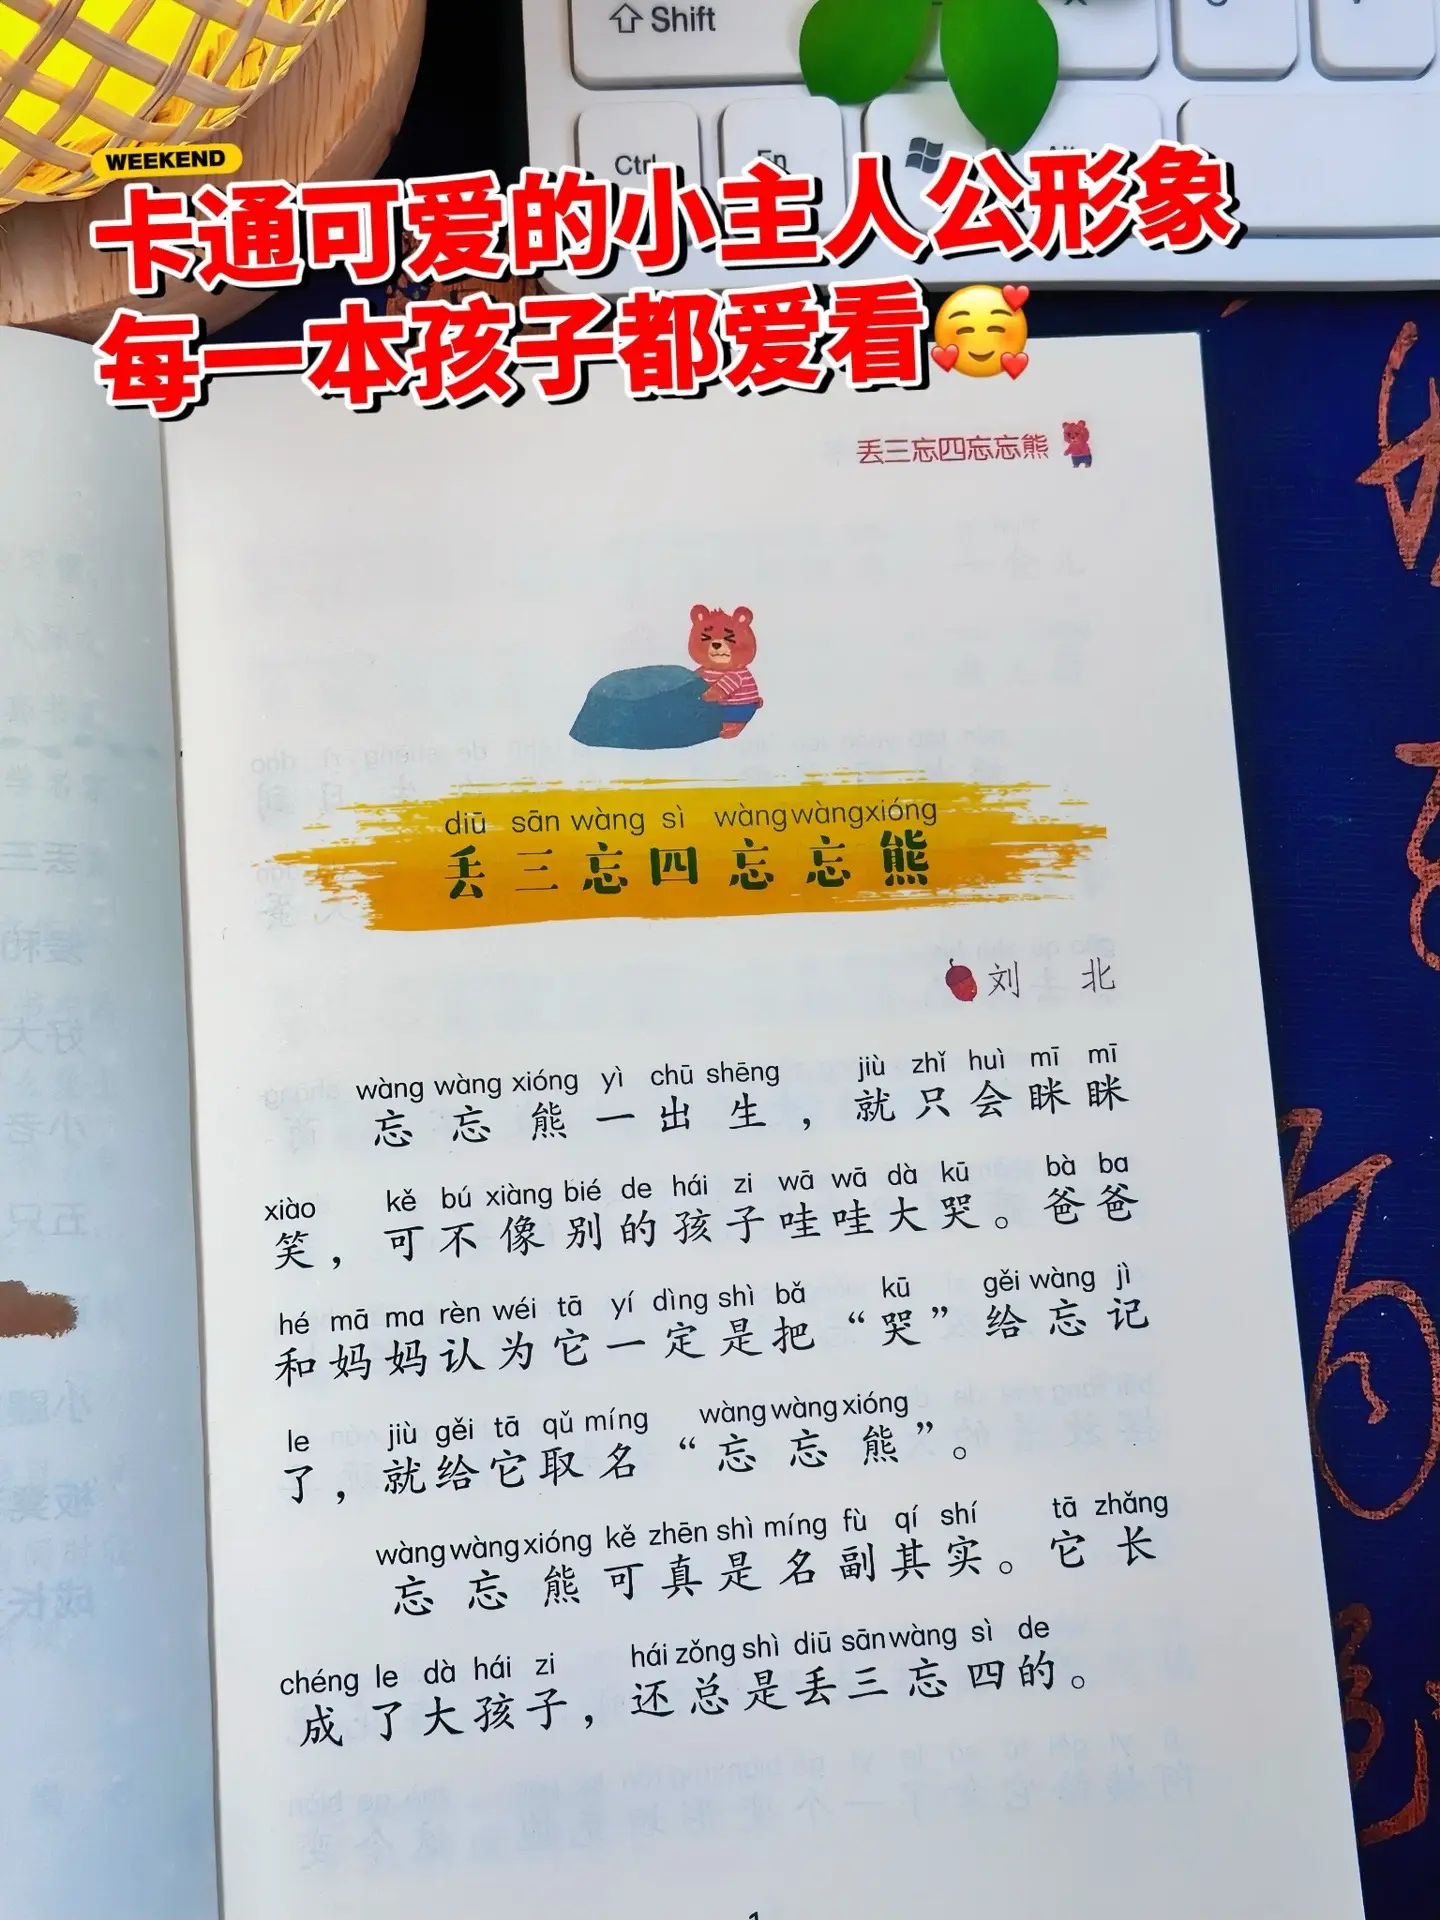 Shift
Ctrl
Fn
WEEKEND
卡通可爱的小主人公形象
每一本孩子都爱看🥰
丢三忘四忘忘熊
diū sān wàng sì wàng wàng xióng
丢三忘四忘忘熊
刘 北
wàng wàng xióng yì chū shēng jiù zhǐ huì mī mī
忘忘熊一出生，就只会眯眯
xiào kě bú xiàng bié de hái zi wā wā dà kū bà ba
笑，可不像别的孩子哇哇大哭。爸爸
hé mā ma rèn wéi tā yí dìng shì bǎ kū gěi wàng jì
和妈妈认为它一定是把“哭”给忘记
le jiù gěi tā qǔ míng wàng wàng xióng
了，就给它取名“忘忘熊”。
wàng wàng xióng kě zhēn shì míng fù qí shí tā zhǎng
忘忘熊可真是名副其实。它长
chéng le dà hái zi hái zǒng shì diū sān wàng sì de
成了大孩子，还总是丢三忘四的。